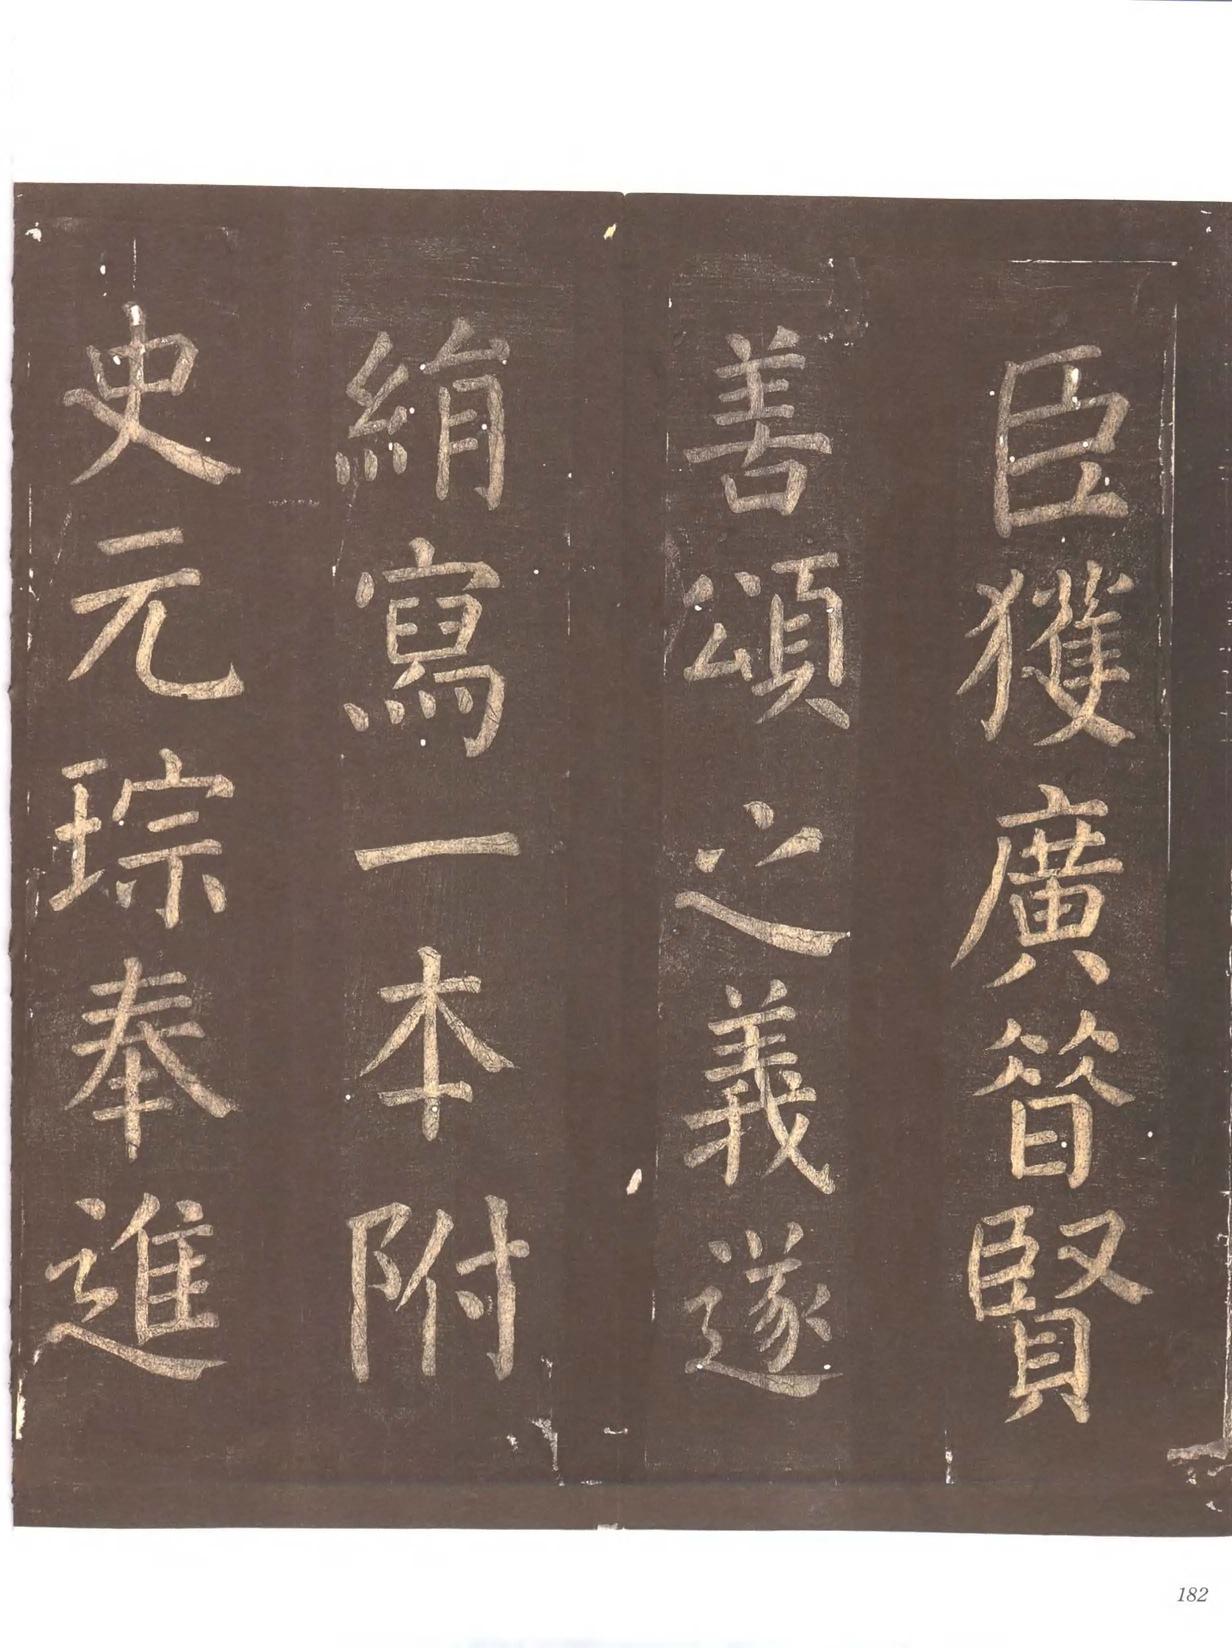 臣獲廣昝賢
善頌之義遂
絹寫一本附
史元琮奉進
182